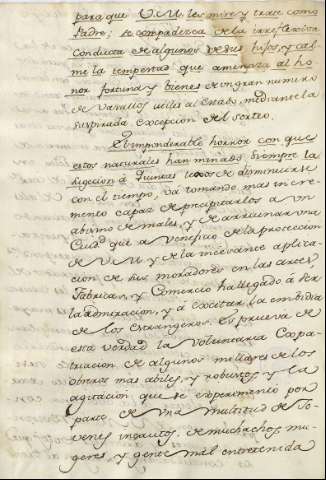 para que V.M. les mire y trate como
Padre; se compadezca de la irreflexiva
conducta de algunos de sus hijos y cal
me la tempestad que amenaza al ho
nor fortuna y bienes de un gran numero
de Vasallos utiles al Estado, mediante la
suspirada excepcion del sorteo.
El imponderable horror con que
estos naturales han mirado siempre la
sugecion á Quintas lexos de disminuirse
con el tiempo, va tomando mas incre-
mento capaz de precipitarlos á un
abismo de males, y de arruinar una
Ciud.d que á beneficio de la proteccion
de V.M. y de la incesante aplica-
cion de sus moradores en las artes,
Fabricas, y Comercio ha llegado á ser
la admiracion, y á excitar la embidia
de los Extrangeros. Es prueva de
esta verdad la voluntaria Expa-
triacion de algunos millares de los
obreros mas abiles, y robustos y la
agitacion que se experimento por
parte de una multitud de Jo-
venes incautos, de muchachos, mu-
geres, y gente mal entretenida